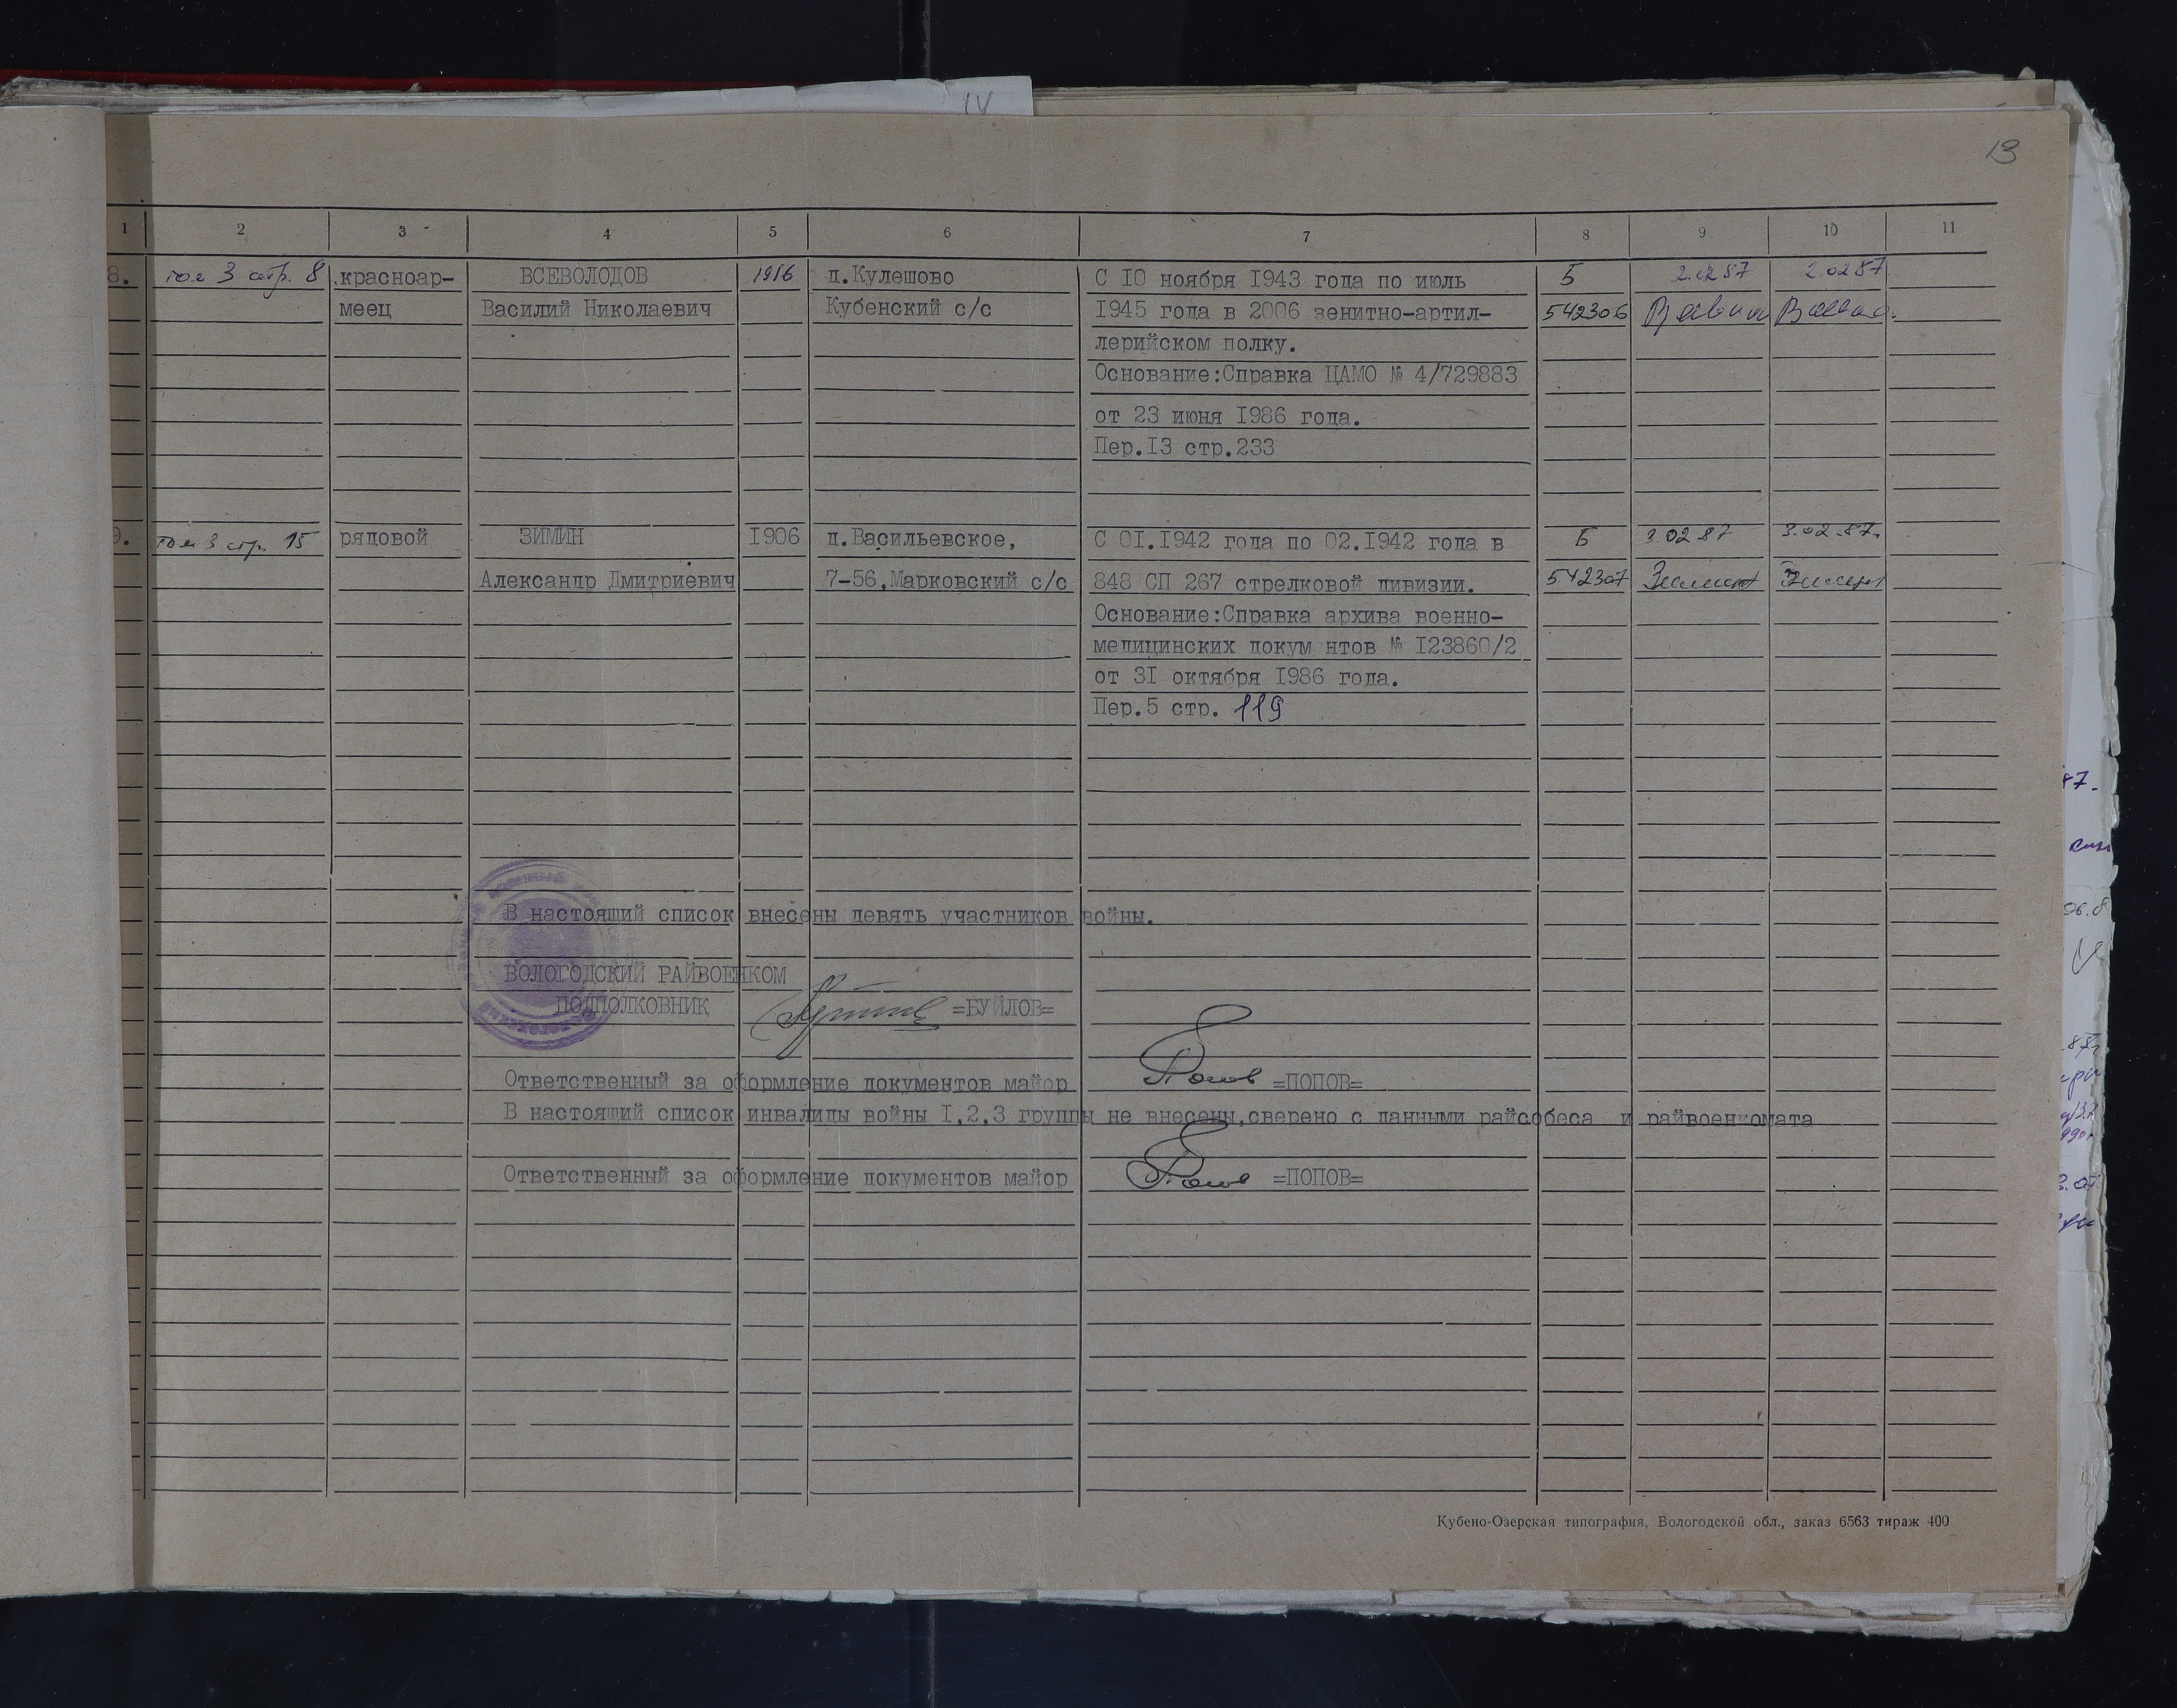 IV
13
1 2 3 4 5 6 7 8 9 10 11
8. том 3 стр. 8 красноар- ВСЕВОЛОДОВ 1916 д.Кулешово С 10 ноября 1943 года по июль Б 2.02 87 2.02 87
меец Василий Николаевич Кубенский с/с 1945 года в 2006 зенитно-артил- 542306
лерийском полку.
Основание:Справка ЦАМО № 4/729883
от 23 июня 1986 года.
Пер.13 стр.233
9. том 3 стр. 15 рядовой ЗИМИН 1906 д.Васильевское, С 01.1942 года по 02.1942 года в Б 3 02 87 3.02.87.
Александр Дмитриевич 7-56,Марковский с/с 848 СП 267 стрелковой дивизии. 542307
Основание:Справка архива военно-
медицинских докум нтов № 123860/2
от 31 октября 1986 года.
Пер.5 стр. 119
В настоящий список внесены девять участников войны.
ВОЛОГОДСКИЙ РАЙВОЕНКОМ
ПОДПОЛКОВНИК =БУЙЛОВ=
Ответственный за оформление документов майор Попов =ПОПОВ=
В настоящий список инвалиды войны 1,2,3 группы не внесены,сверено с данными райсобеса и райвоенкомата
Ответственный за оформление документов майор Попов =ПОПОВ=
Кубено-Озерская типография, Вологодской обл., заказ 6563 тираж 400